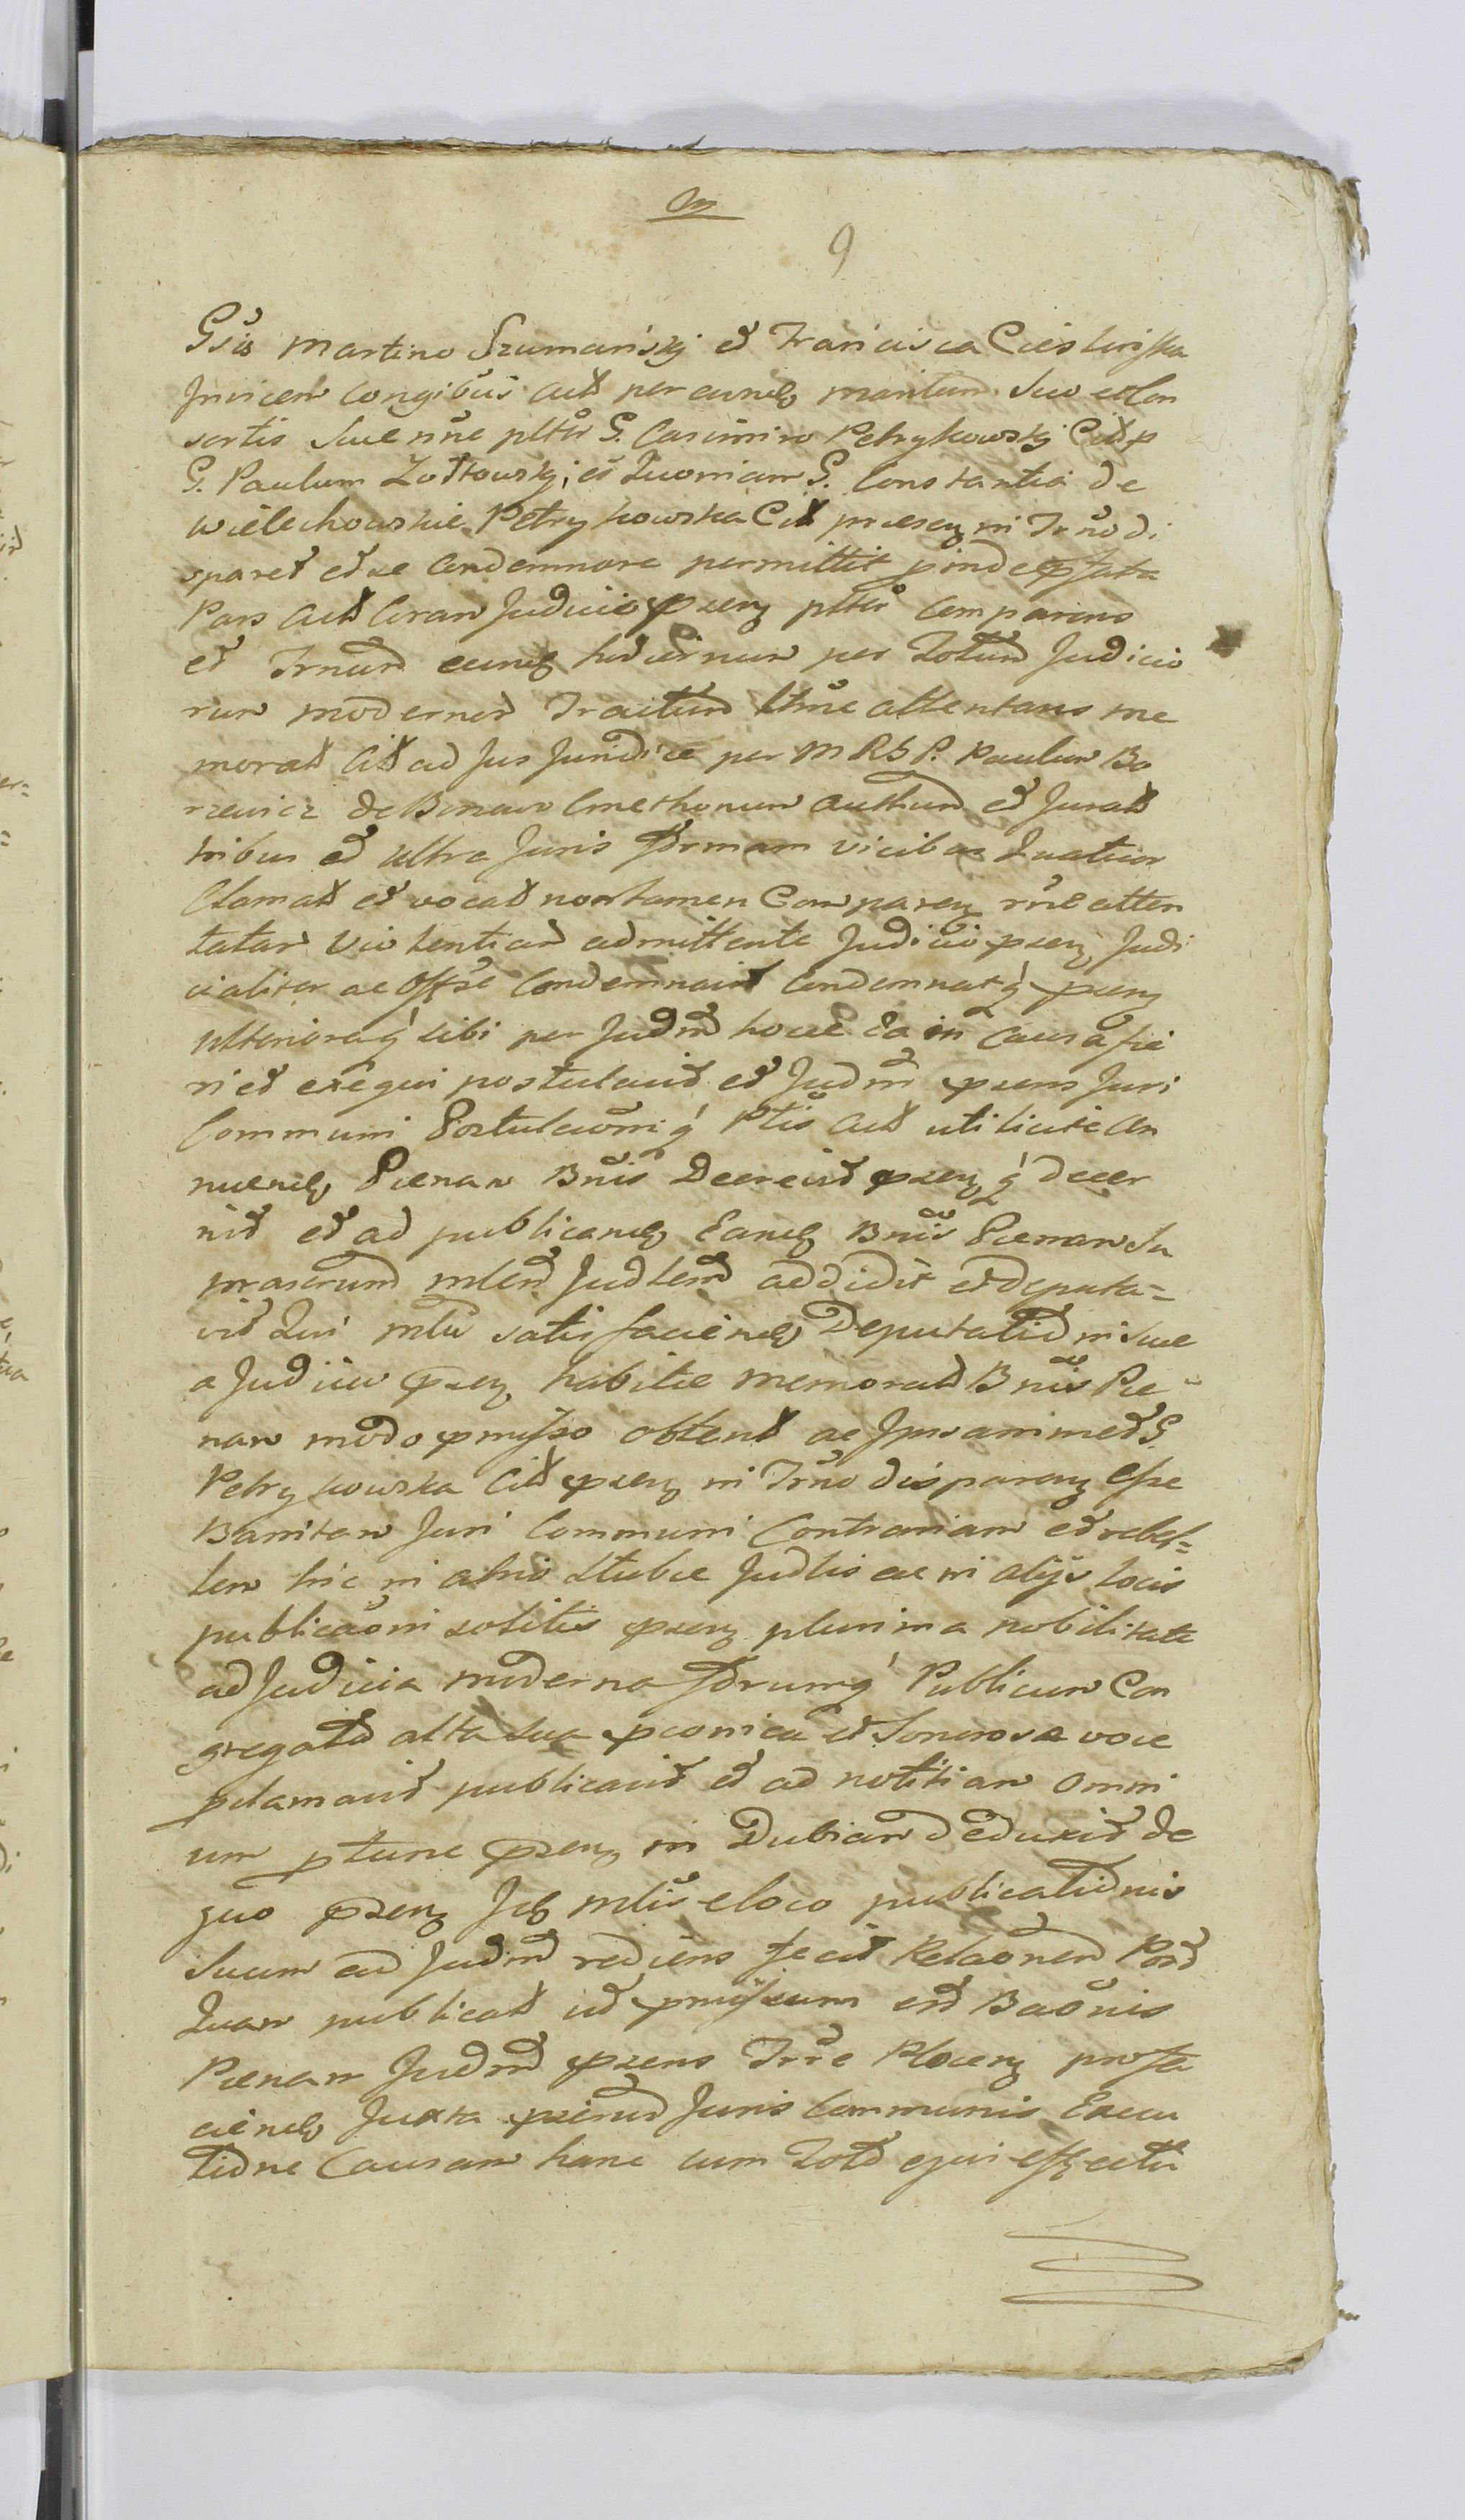 9
Gsis Martino Szumański et Francisca Cieslinska
Invicem Congibus Act per eundem maritum Suo et Con
sortis Suae nne pltr G. Casimiro Petrykowski Citt p
G. Paulum Zołtowski, et Quoniam G. Constantia de
Wielechowskie Petrykowska Citt praesen in Trno di
sparet et se Condemnare permittit pinde pfata
Pars Act Coram Judicio pzen pltr Comparens
et Trnum eund hodiernum per Totum Judicio
rum modernor Tractum ltime attentans me
morat Citt ad Jus Juridice per M RSP. Paulum Bo
rzewicz de Cmethonum Authum et Jurat
tribus et ultra Juris formam vicibus Quatuor
Clamat et vocat non tamen Comparen rne atten
tatam Violentiam admittente Judicio pzen Judi
cialiter ac Offse Condemnavit Condemnatq pzen
ulterioraq sibi per Judm hocce Ea in Causa fie
ri et exequi postulavit et Judm pzens Juri
Communi Postulaoniq Ptis Act uti licite An
nuend Paenam Bnis Decrevit pzenq decer
nit et ad publicand Eand Bnis Paenam Su
prascrum mlem Judlem addidit et deputa=
vit Qui mlr satisfaciend Deputationi Suae
a Judicio pzen habitae memorat Bnis Pae
nam modo pmisso obtent ac Ipsammet G.
Petrykowska Citt pzen in Trno disparen esse
Bannitam Juri Communi Contrariam et rebel=
lem hic in atrio Stubae Judlis ac in alijs locis
publicaoni solitis pzen plurima nobilitate
ad Judicia moderna forumq Publicum Con
gregata alta sua pconica et Sonorosa voce
pclamavit publicavit et ad notitiam Omni
um ptunc pzen in Dubiam deduxit de
quo pzen Id mlis eloco publicationis
Suam ad Judm rediens fecit Relaonem Post
Quam publicat ut pmissum est Baonis
Paenam Judm pzens Trre Plocen prosa
ciend Juxta pzinum Juris Communis Execu
tione Causam hanc cum Toto ejus effectu